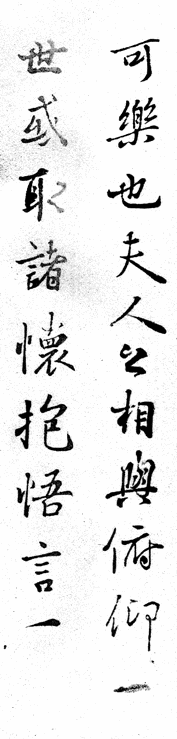 可樂也夫人之相與俯仰一
世或取諸懷抱悟言一